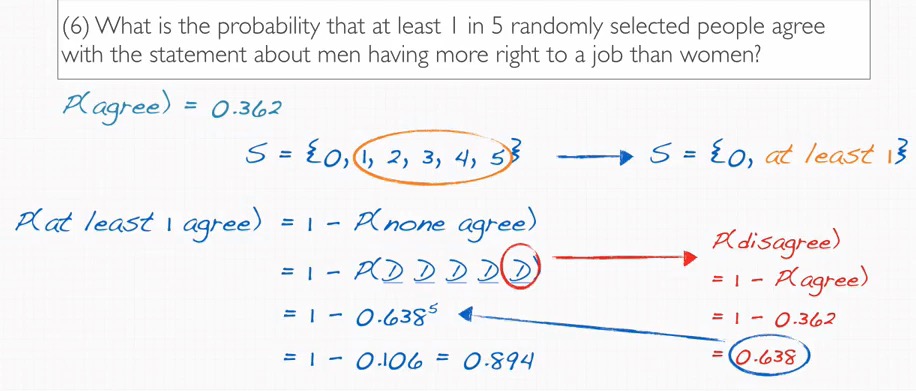 (6) What is the probability that at least 1 in 5 randomly selected people agree
with the statement about men having more right to a job than women?
P(agree) = 0.362
S = {0, 1, 2, 3, 4, 5} → S = {0, at least 1}
P(at least 1 agree) = 1 - P(none agree)
= 1 - P(D D D D D)
= 1 - 0.638⁵
= 1 - 0.106 = 0.894
P(disagree)
= 1 - P(agree)
= 1 - 0.362
= 0.638